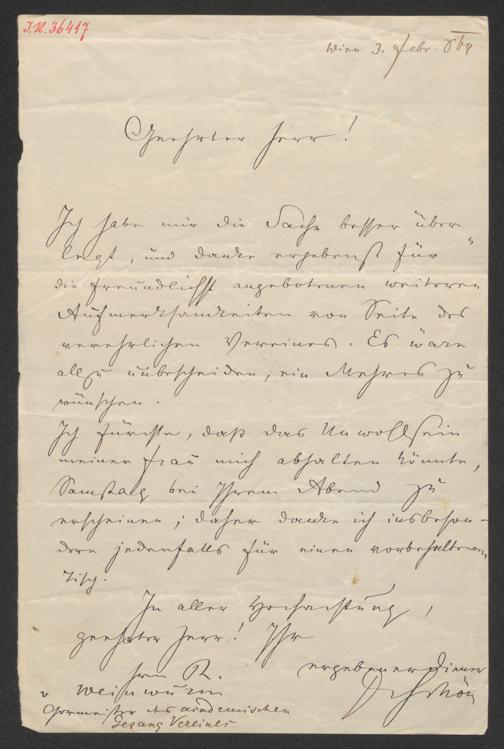 I.N. 36417
Wien 3. Febr. 864
Geehrter Herr!
Ich habe mir die Sache besser über
legt, und danke ergebenst für
die freundlichst angebotenen weiteren
Aufmerksamkeiten von Seite des
verehrlichen Vereines. Es wäre
allzu unbescheiden, ein Mehres zu
wünschen.
Ich fürchte, daß das Unwohlsein
meiner Frau mich abhalten könnte,
Samstag bei Ihrem Abend zu
erscheinen; daher danke ich insbeson-
dere jedenfalls für einen vorbehaltenen
Tisch.
In aller Hochachtung,
geehrter Herr! Ihr
ergebener Diener
Herrn R.
Weinwurm
Chormeister des academischen
Gesang Vereines